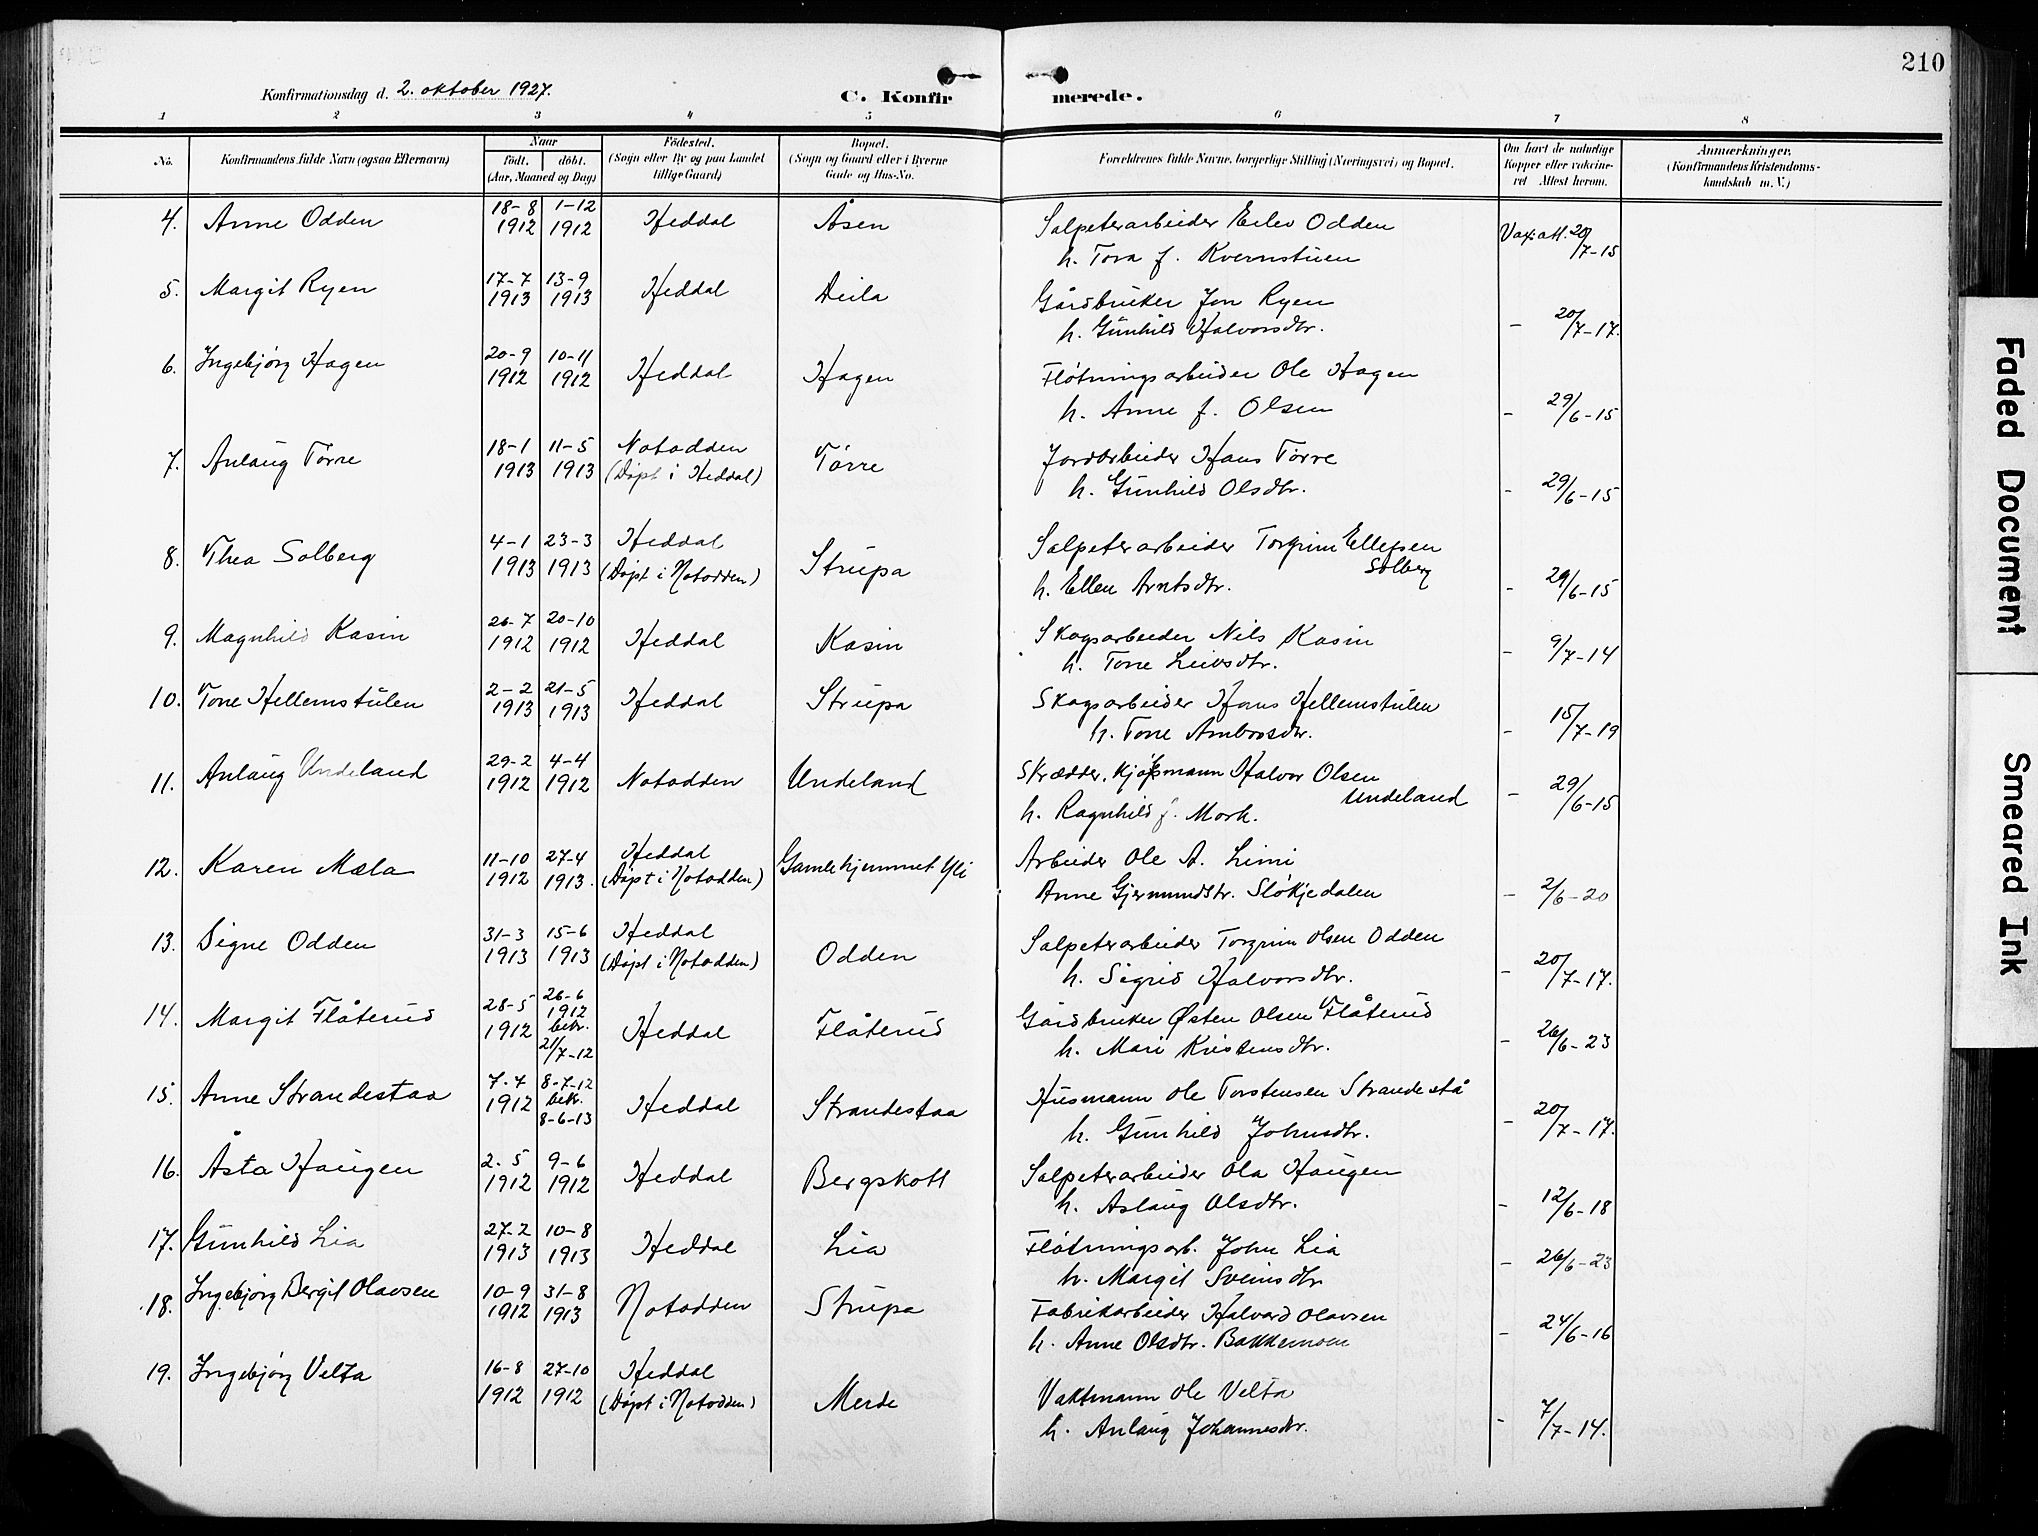 210
Konfirmationsdag d. 2. oktober 1927.
C. Konfirmerede.
1 2 3 4 5 6 7 8
No.
Konfirmandens fulde Navn (ogsaa Efternavn)
Naar
født. | døbt.
(Aar, Maaned og Dag)
Fødested.
(Sogn eller By og paa Landet
tillige Gaard)
Bopæl.
(Sogn og Gaard eller i Byerne
Gade og Hus-No.
Forældrenes fulde Navne, borgerlige Stilling (Næringsvei) og Bopæl.
Om havt de naturlige
Kopper eller vakcine-
ret Attest herom.
Anmærkninger.
(Konfirmandens Kristendoms-
kundskab m. V.)
4. Anne Odden 18-8 1912 1-12 1912 Heddal Åsen Salpeterarbeider Eilev Odden
h. Tora f. Kvernstuen Vax: att. 20/7-15
5. Margit Ryen 17-7 1913 13-9 1913 Heddal Deila Gårdbruker Jon Ryen
h. Gunhild Halvorsdtr. – 20/7-17.
6. Ingebjørg Hagen 20-9 1912 10-11 1912 Heddal Hagen Fløtningsarbeider Ole Hagen
h. Anne f. Olsen – 29/6-15
7. Anlaug Tørre 18-1 1913 11-5 1913 Notodden (Døpt i Heddal) Tørre Jordarbeider Hans Tørre
h. Gunhild Olsdtr. – 29/6-15
8. Thea Solberg 4-1 1913 23-3 1913 Heddal (Døpt i Notodden) Strupa Salpeterarbeider Torgrim Ellefsen
Solberg
h. Ellen Arntsdtr. – 29/6-15
9. Magnhild Kasin 26-7 1912 20-10 1912 Heddal Kasin Skogsarbeider Nils Kasin
h. Tone Leivsdtr. – 9/7-14
10. Tone Hellemstulen 2-2 1913 21-5 1913 Heddal Strupa Skogsarbeider Hans Hellemstulen
h. Tone – 15/7-19
11. Anlaug Undeland 29-2 1912 4-4 1912 Notodden Undeland Skrædder, kjøpmann Halvor Olsen
Undeland
h. Ragnhild f. Mork. – 29/6-15
12. Karen Mæla 11-10 1912 27-4 1913. Heddal (Døpt i Notodden) Gamlehjemmet Yli Arbeider Ole A. Limi
Anne Gjermundstr. Sløkjedalen – 2/6-20
13. Signe Odden 31-3 1913 15-6 1913 Heddal (Døpt i Notodden) Odden Salpeterarbeider Torgrim Olsen Odden
h. Sigrid Halvorsdtr. – 20/7-17.
14. Margit Flåterud 28-5 1912 26-6 1912 bekr. 21/7-12 Heddal Flåterud Gårdbruker Østen Olsen Flåterud
h. Mari Kristensdtr. – 26/6-23
15. Anne Strandestaa 7-7 1912 8-7-12 bekr. 8-6-13 Heddal Strandestaa Husmann Ole Torstensen Strandestå
h. Gunhild Johnsdtr. – 20/7-17.
16. Åsta Haugen 2-5 1912 9-6 1912 Heddal Bergskott Salpeterarbeider Ola Haugen
h. Aslaug Olsdtr. – 12/6-18
17. Gunhild Lia 27-2 1913 10-8 1913 Heddal Lia Fløtningsarb. John Lia
h. Margit Sveinsdtr – 26/6-23
18. Ingebjørg Bergit Olavsen 10-9 1912 31-8 1913 Notodden Strupa Fabrikarbeider Halvard Olavsen
h. Anne Olsdtr. Bakkemoen – 24/6-16
19. Ingebjørg Velta 16-8 1912 27-10 1912 Heddal (Døpt i Notodden) Merde Vaktmann Ole Velta
h. Anlaug Johannesdtr. – 7/7-14.
Faded Document
Smeared Ink